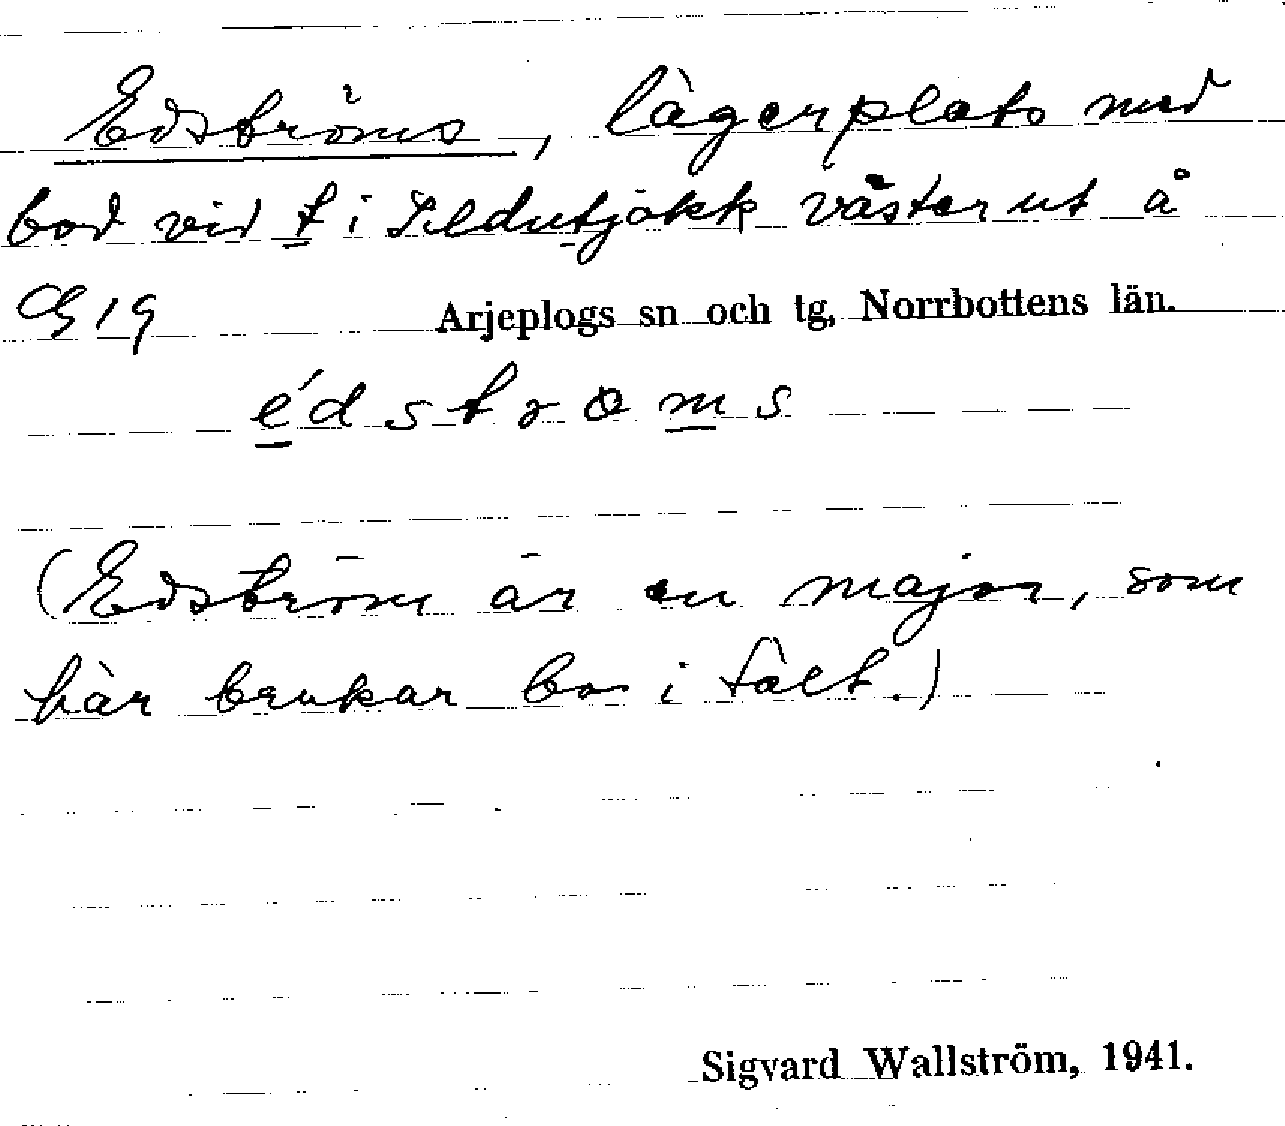 Edströms, lägerplats med
bod vid t i Ildutjåkk västerut å
G 19 Arjeplogs sn och tg, Norrbottens län.
édstroms
(Edström är en major, som
här brukar bo i tält.)
Sigvard Wallström, 1941.